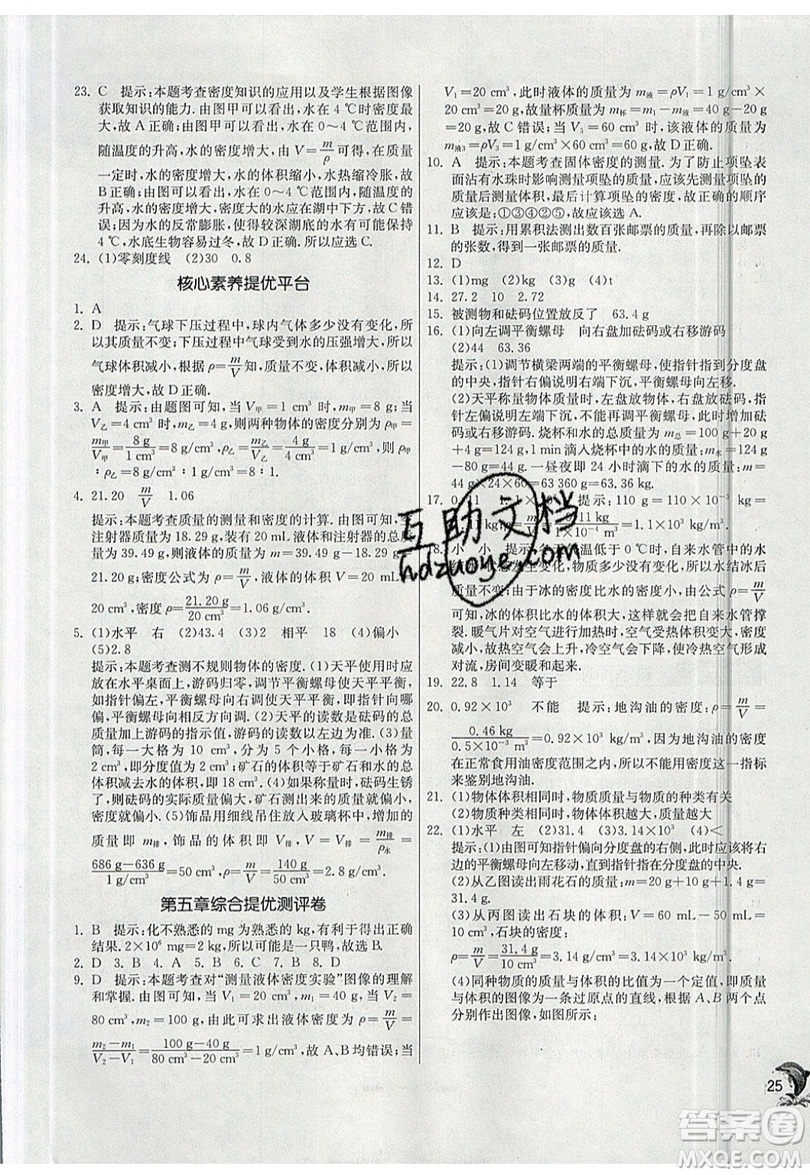 23. C 提示：本题考查密度知识的应用以及学生根据图像
获取知识的能力. 由图甲可以看出，水在 4 ℃时密度最
大，故 A 正确；由图甲可以看出，水在 0～4 ℃范围内，
随温度的升高，水的密度增大，由 V＝m/ρ 可得，在质量
一定时，水的密度增大，水的体积缩小，水热缩冷胀，故
B 正确；由图可知，水在 0～4 ℃范围内，随温度的升
高，水的密度增大，密度大的水应在湖中下方，故 C 错
误；因为水的反常膨胀，水结冰后，较深湖底的水能保持
4 ℃，水底生物容易过冬，故 D 正确. 所以应选
24. (1)零刻度线 (2)30 0.8
核心素养提优平台
1. A
2. D 提示：气球下压过程中，球内气体多少没有变化，所
以其质量不变；下压过程中，受到水的压强增大，所以
气球体积减小，根据 ρ＝m/V，质量不变，体积减小，所以
密度增大，故 D 正确.
3. A 提示：由题图可知，当 V甲＝1 cm³ 时，m甲＝8 g；当
V乙＝4 cm³ 时，m乙＝4 g；则两种物体的密度分别为 ρ甲
＝m甲/V甲＝8 g/1 cm³＝8 g/cm³，ρ乙＝m乙/V乙＝4 g/4 cm³＝1 g/cm³，则 ρ甲
∶ρ乙＝8 g/cm³∶1 g/cm³＝8∶1.
4. 21.20 m/V 1.06
提示：本题考查质量的测量和密度的计算. 由图可知，空
注射器质量为 18.29 g，装有 20 mL 液体和注射器的总质
量为 39.49 g，则液体的质量为 m＝39.49 g－18.29 g＝
21.20 g；密度公式为 ρ＝m/V，液体的体积为 20 mL＝
20 cm³，密度 ρ＝21.20 g/20 cm³＝1.06 g/cm³.
5. (1)水平 右 (2)43.4 (3)2 相平 18 (4)偏小
(5)2.8
提示：本题考查测不规则物体的密度. (1)天平使用时应
放在水平桌面上，游码归零，调节平衡螺母使天平平衡，
如指针偏左，平衡螺母向右调，指针偏右，平衡螺母向左
偏，平衡螺母向相反方向调. (2)天平的读数是砝码的总
质量加上游码的指示值，游码的读数以左边为准. (3)量
筒，每一大格为 10 cm³，共分为 5 个小格，每小格为
2 cm³，即分度值为 2 cm³；矿石的体积等于矿石和水的总
体积减去水的体积，即 18 cm³. (4)如果称量时，砝码生锈
了，砝码的实际质量偏大，矿石测出来的质量就会偏小，
密度偏小. (5)饰品用细线吊住放入玻璃杯中，增大的
质量即 m排，饰品的体积即 V排，V排＝m排/ρ水＝
(686 g－636 g)/(1 g/cm³)＝50 cm³，ρ＝m/V＝140 g/50 cm³＝2.8 g/cm³.
第五章综合提优测评卷
1. B 提示：化不熟悉的 mg 为熟悉的 kg，有利于得出正确
结果. 2×10⁶ mg＝2 kg，所以可能是一只鸭，故选 B.
2. D 3. B 4. B 5. D 6. D 7. D 8. A
9. D 提示：本题考查对“测量液体密度实验”图像的理解
和掌握. 由图可知，当 V₁＝20 cm³，m₁＝40 g；当 V₂＝
80 cm³，m₂＝100 g，由此可求出液体密度为 ρ＝
(m₂－m₁)/(V₂－V₁)＝(100 g－40 g)/(80 cm³－20 cm³)＝1 g/cm³，故 A、B 均错误；当
V₁＝20 cm³，此时液体的质量为 m液＝ρV₁＝1 g/cm³×
20 cm³＝20 g，故量杯质量为 m杯＝m₁－m液＝40 g－
20 g＝20 g，故 C 错误；当 V₃＝60 cm³ 时，该液体的质量
为 m液3＝ρV₃＝1 g/cm³×60 cm³＝60 g，故 D 正确.
10. A 提示：本题考查固体密度的测量. 为了防止项坠表
面沾有水珠时影响测量项坠的质量，应该先测量项坠
的质量后测量体积，最后计算项坠的密度，正确的顺序
应该是：①③④②⑤，故应该选 A.
11. B 提示：用累积法测出数百张邮票的质量，除以邮票
的张数，得到一张邮票的质量.
12. D
13. (1)mg (2)kg (3)g (4)t
14. 27.2 10 2.72
15. 被测物和砝码位置放反了 63.4 g
16. (1)向左调平衡螺母 向右盘加砝码或右移游码
(2)44 63.36
提示：(1)调节横梁两端的平衡螺母，使指针指到分度盘
的中央，指针右偏说明右端下沉，平衡螺母向左移.
(2)天平称量物体质量时，左盘放物体，右盘放砝码，指
针左偏说明左端下沉，不能再调平衡螺母，应增加砝
码或右移游码. 烧杯和水的总质量为 m总＝110 g＋
44 g，1 min 滴入烧杯中水的质量为
44 g. 一昼夜即 24 小时流掉水的质量为
44 g×24×60＝63 360 g，63.36 kg.
17. 0.11 提示：110 g＝110×10⁻³ kg
1.1×10³ kg/m³
18. 小 小 提示：冬天气温低于 0 ℃，自来水管中的
水状态发生变化，物质多少没变化，所以水结冰后
质量不变；由于冰的密度比水的密度小，由公式 ρ＝m/V
可得，冰的体积比水的体积大，就会把自来水管撑
裂. 暖气片对空气进行加热时，空气受热体积变大，密
度变小，热空气就会上升，冷空气就会下沉，空气形成
对流，房间变暖和起来.
19. 22.8 1.14 等于
20. 0.92×10³ 不能 提示：地沟油的密度 ρ＝m/V＝
0.46 kg/(0.5×10⁻³ m³)＝0.92×10³ kg/m³，因为地沟油的密度
在正常食用油密度范围之内，所以密度这一指标不能用
来鉴别地沟油.
21. (1)物体体积相同时，物质质量与物质的种类有关
(2)物质种类相同时，物体体积越大，质量越大
22. (1)水平 左 (2)31.4 (3)3.14×10³ (4)＜
提示：(1)由图可知指针偏向分度盘的右侧，应将横梁右
边的平衡螺母向左移动，直到指针指在分度盘的中央.
(2)从乙图读出雨花石的质量 m＝20 g＋10 g＋1.4 g＝
31.4 g.
(3)从丙图读出石块的体积 V＝60 mL－50 mL＝
10 cm³，密度 ρ＝m/V＝31.4 g/10 cm³＝3.14 g/cm³＝3.14×10³ kg/m³.
(4)同种物质的质量与体积的比值为一个定值，质量与
体积的图像为一条过原点的直线，根据 A、B 两个点
分别作出图像，如图所示：
25
互助文档
hdzuoye.com
答案圈
MXQE.COM